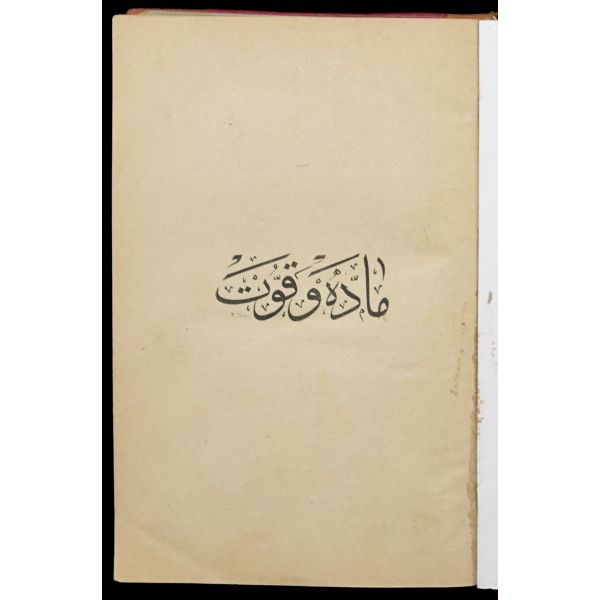 مادّه وَ قوّت